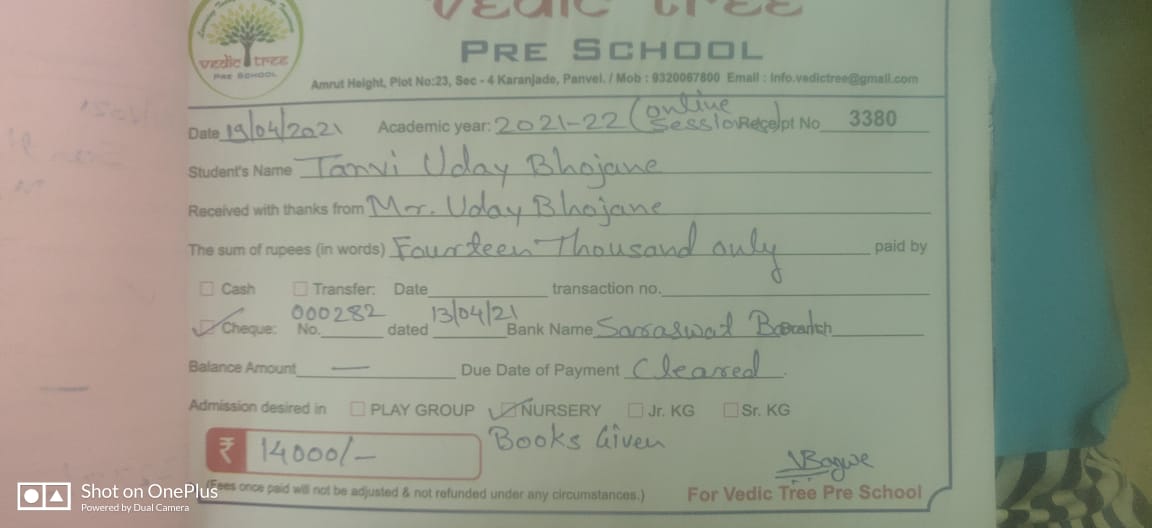 vedic tree
PRE SCHOOL
VEDIC TREE
PRE SCHOOL
Amrut Height, Plot No:23, Sec - 4 Karanjade, Panvel. / Mob : 9320067800 Email : Info.vedictree@gmail.com
Date 19/04/2021 Academic year: 2021-22 (online session) Receipt No 3380
Student's Name Tanvi Uday Bhojane
Received with thanks from Mr. Uday Bhojane
The sum of rupees (in words) Fourteen Thousand only paid by
Cash Transfer: Date transaction no.
Cheque: No. 000282 dated 13/04/21 Bank Name Saraswat Branch
Balance Amount — Due Date of Payment Cleared
Admission desired in PLAY GROUP NURSERY Jr. KG Sr. KG
₹ 14000/- Books Given
VBagwe
(Fees once paid will not be adjusted & not refunded under any circumstances.) For Vedic Tree Pre School
Shot on OnePlus
Powered by Dual Camera